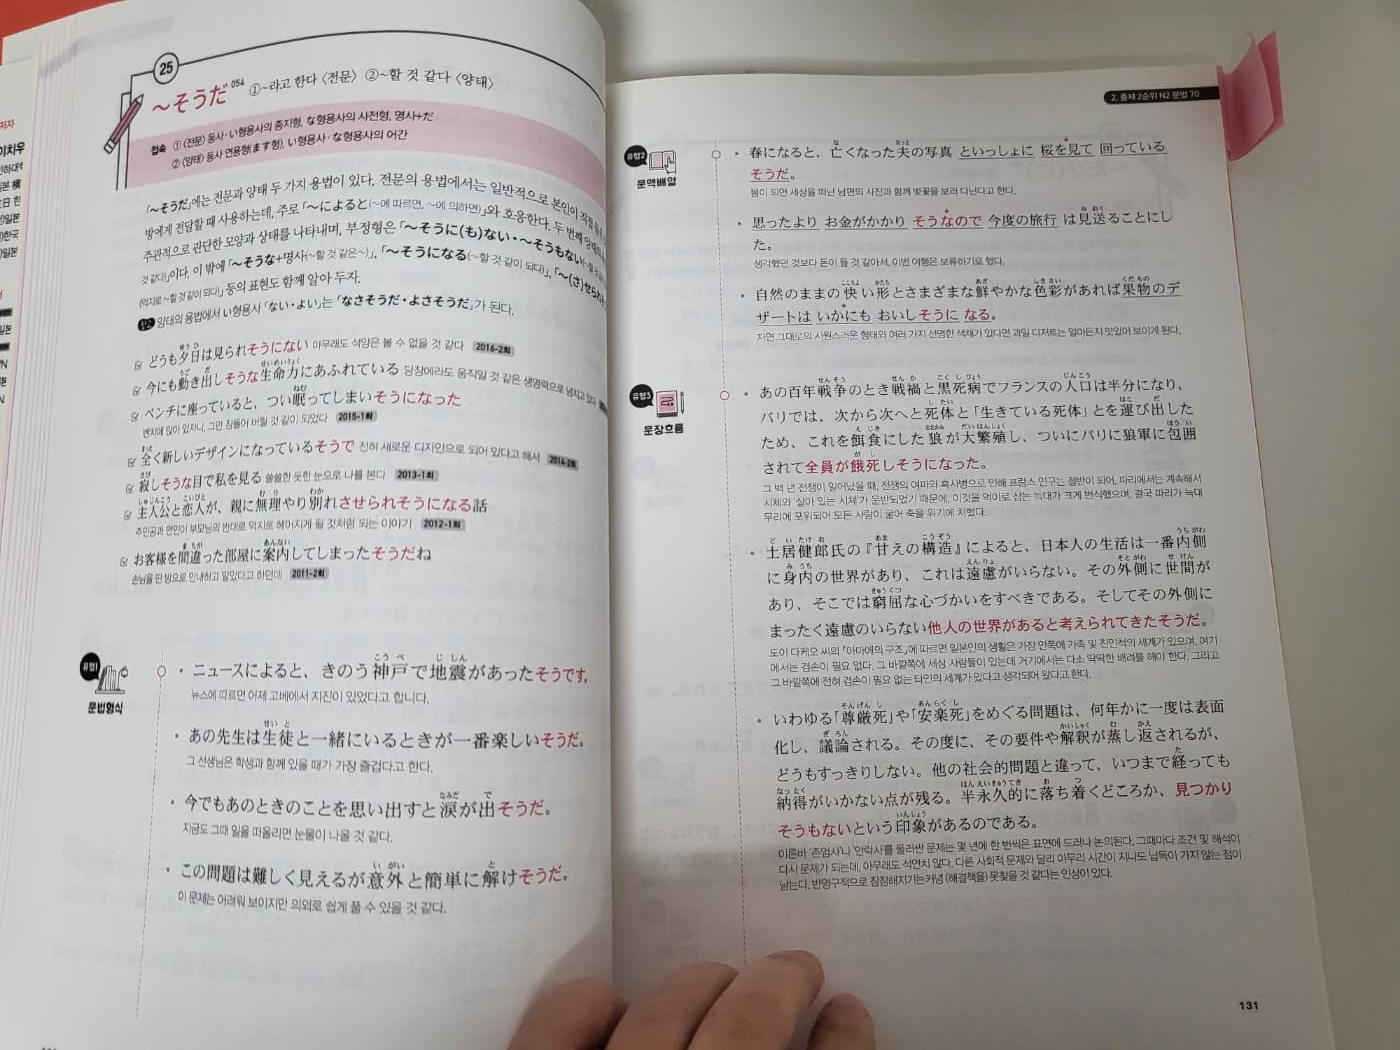 저자
이치우
25
～そうだ 054 ①~라고 한다 〈전문〉 ②~할 것 같다 〈양태〉
접속 ① 〈전문〉 동사·い형용사의 종지형, な형용사의 사전형, 명사+だ
② 〈양태〉 동사 연용형(ます형), い형용사·な형용사의 어간
「～そうだ」에는 전문과 양태 두 가지 용법이 있다. 전문의 용법에서는 일반적으로 본인이 직접
방에게 전달할 때 사용하는데, 주로 「～によると(~에 따르면, ~에 의하면)」와 호응한다. 두 번째 양태의
주관적으로 판단한 모양과 상태를 나타내며, 부정형은 「～そうに(も)ない・～そうもない
것 같다)」이다. 이 밖에 「～そうな+명사(~할 것 같은~)」, 「～そうになる(~할 것 같이 되다)」, 「～(さ)せられ
(억지로 ~할 것 같이 되다)」 등의 표현도 함께 알아 두자.
양태의 용법에서 い형용사 「ない・よい」는 「なさそうだ・よさそうだ」가 된다.
どうも夕日は見られそうにない 아무래도 석양은 볼 수 없을 것 같다 2016-2회
今にも動き出しそうな生命力にあふれている 당장에라도 움직일 것 같은 생명력으로 넘치고 있다
ベンチに座っていると、つい眠ってしまいそうになった
벤치에 앉아 있자니, 그만 잠들어 버릴 것 같이 되었다 2015-1회
全く新しいデザインになっているそうで 전혀 새로운 디자인으로 되어 있다고 해서 2014-2회
寂しそうな目で私を見る 쓸쓸한 듯한 눈으로 나를 본다 2013-1회
主人公と恋人が、親に無理やり別れさせられそうになる話
주인공과 연인이 부모님의 반대로 억지로 헤어지게 될 것처럼 되는 이야기 2012-1회
お客様を間違った部屋に案内してしまったそうだね
손님을 딴 방으로 안내하고 말았다고 하던데 2011-2회
유형1
문법형식
・ニュースによると、きのう神戸で地震があったそうです。
뉴스에 따르면 어제 고베에서 지진이 있었다고 합니다.
・あの先生は生徒と一緒にいるときが一番楽しいそうだ。
그 선생님은 학생과 함께 있을 때가 가장 즐겁다고 한다.
・今でもあのときのことを思い出すと涙が出そうだ。
지금도 그때 일을 떠올리면 눈물이 나올 것 같다.
・この問題は難しく見えるが意外と簡単に解けそうだ。
이 문제는 어려워 보이지만 의외로 쉽게 풀 수 있을 것 같다.
2. 출제 2순위 N2 문법 70
유형2
문맥배열
・春になると、亡くなった夫の写真 といっしょに 桜を見て 回っている
そうだ。
봄이 되면 세상을 떠난 남편의 사진과 함께 벚꽃을 보러 다닌다고 한다.
・思ったより お金がかかり そうなので 今度の旅行 は見送ることにし
た。
생각했던 것보다 돈이 들 것 같아서, 이번 여행은 보류하기로 했다.
・自然のままの快い形とさまざまな鮮やかな色彩があれば果物のデ
ザートは いかにも おいしそうに なる。
자연 그대로의 시원스러운 형태와 여러 가지 선명한 색채가 있다면 과일 디저트는 얼마든지 맛있어 보이게 된다.
유형3
문장흐름
・あの百年戦争のとき戦禍と黒死病でフランスの人口は半分になり、
パリでは、次から次へと死体と「生きている死体」とを運び出した
ため、これを餌食にした狼が大繁殖し、ついにパリに狼軍に包囲
されて全員が餓死しそうになった。
그 백 년 전쟁이 일어났을 때, 전쟁의 여파와 흑사병으로 인해 프랑스 인구는 절반이 되어, 파리에서는 계속해서
시체와 '살아 있는 시체'가 운반되었기 때문에, 이것을 먹이로 삼는 늑대가 크게 번식했으며, 결국 파리가 늑대
무리에 포위되어 모든 사람이 굶어 죽을 위기에 처했다.
・土居健郎氏の『甘えの構造』によると、日本人の生活は一番内側
に身内の世界があり、これは遠慮がいらない。その外側に世間が
あり、そこでは窮屈な心づかいをすべきである。そしてその外側に
まったく遠慮のいらない他人の世界があると考えられてきたそうだ。
도이 다케오 씨의 『아마에의 구조』에 따르면 일본인의 생활은 가장 안쪽에 가족 및 친인척의 세계가 있으며, 여기
에서는 겸손이 필요 없다. 그 바깥쪽에 세상 사람들이 있는데 거기에서는 다소 딱딱한 배려를 해야 한다. 그리고
그 바깥쪽에 전혀 겸손이 필요 없는 타인의 세계가 있다고 생각되어 왔다고 한다.
・いわゆる「尊厳死」や「安楽死」をめぐる問題は、何年かに一度は表面
化し、議論される。その度に、その要件や解釈が蒸し返されるが、
どうもすっきりしない。他の社会的問題と違って、いつまで経っても
納得がいかない点が残る。半永久的に落ち着くどころか、見つかり
そうもないという印象があるのである。
이른바 '존엄사'나 '안락사'를 둘러싼 문제는 몇 년에 한 번씩은 표면에 드러나 논의된다. 그때마다 조건 및 해석이
다시 문제가 되는데, 아무래도 석연치 않다. 다른 사회적 문제와 달리 아무리 시간이 지나도 납득이 가지 않는 점이
남는다. 반영구적으로 잠잠해지기는커녕 (해결책을) 못찾을 것 같다는 인상이 있다.
131